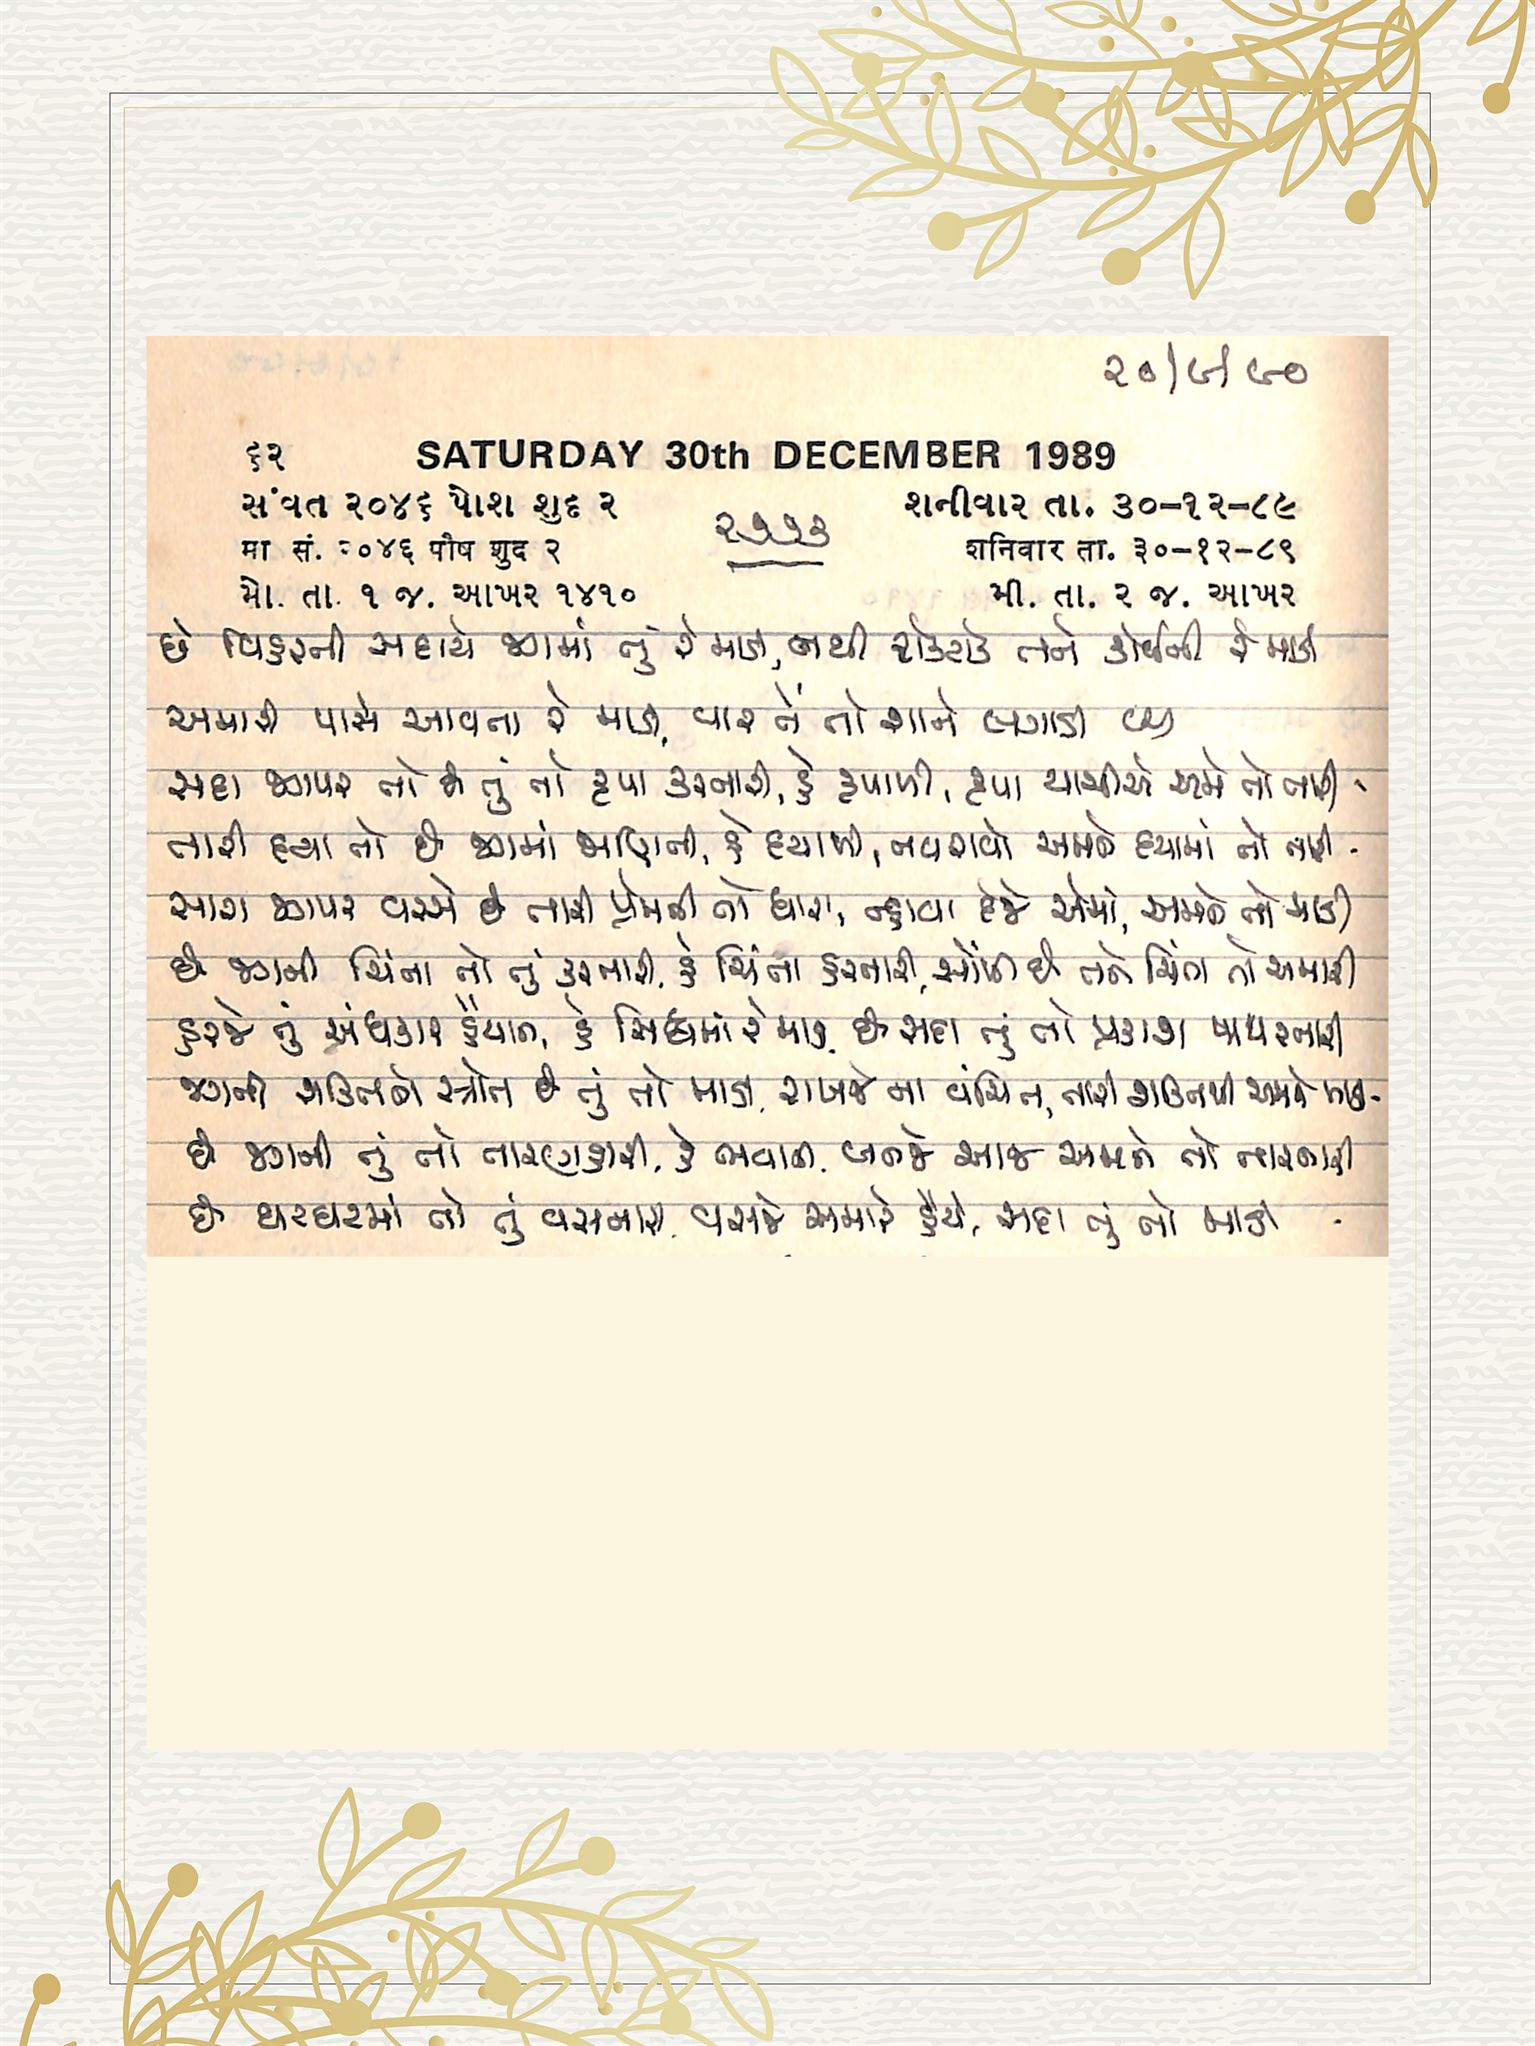 ૨૦/૯/૯૦
૬૨ SATURDAY 30th DECEMBER 1989
સંવત ૨૦૪૬ પોશ શુદ ૨ શનીવાર તા. ૩૦-૧૨-૮૯
मा सं. २०४६ पौष शुद २ शनिवार ता. ३०-१२-८९
મો. તા. ૧ જ. આખર ૧૪૧૦ મી. તા. ૨ જ. આખર
૨૭૭૩
છે વિહરની સદાયે જગમાં તું રે માડી, નથી રોકટોક તને કોઈની રે માડી
અમારી પાસે આવતા રે માડી, વાર તેં તો શાને લગાડી
સદા જગપર તો છે તું તો કૃપા કરનારી, હે કૃપાળી, કૃપા યાચીએ અમે તો તારી
તારી દયા તો છે જગમાં જાણીતી, હે દયાળી, નવરાવો અમને દયામાં તો તારી
સારા જગપર વરસે છે તારી પ્રેમની તો ધારા, ન્હાવા દેજે એમાં, અમને તો માડી
છે જગની ચિંતા તો તું કરનારી, હે ચિંતા હરનારી, સોંપી છે તને ચિંતા તો અમારી
હરજે તું અંધકાર હૈયાના, હે સિધ્ધમાં રે માડી, છે સદા તું તો પ્રકાશ પાથરનારી
જગની શક્તિનો સ્ત્રોત છે તું તો માડી, રાખજે ના વંચિત, તારી શક્તિથી અમને માડી
છે જગની તું તો તારણહારી, હે ભવાની, બનજે આજ અમને તો તારનારી
છે ઘરઘરમાં તો તું વસનારી, વસજે અમારે હૈયે, સદા તું તો માડી